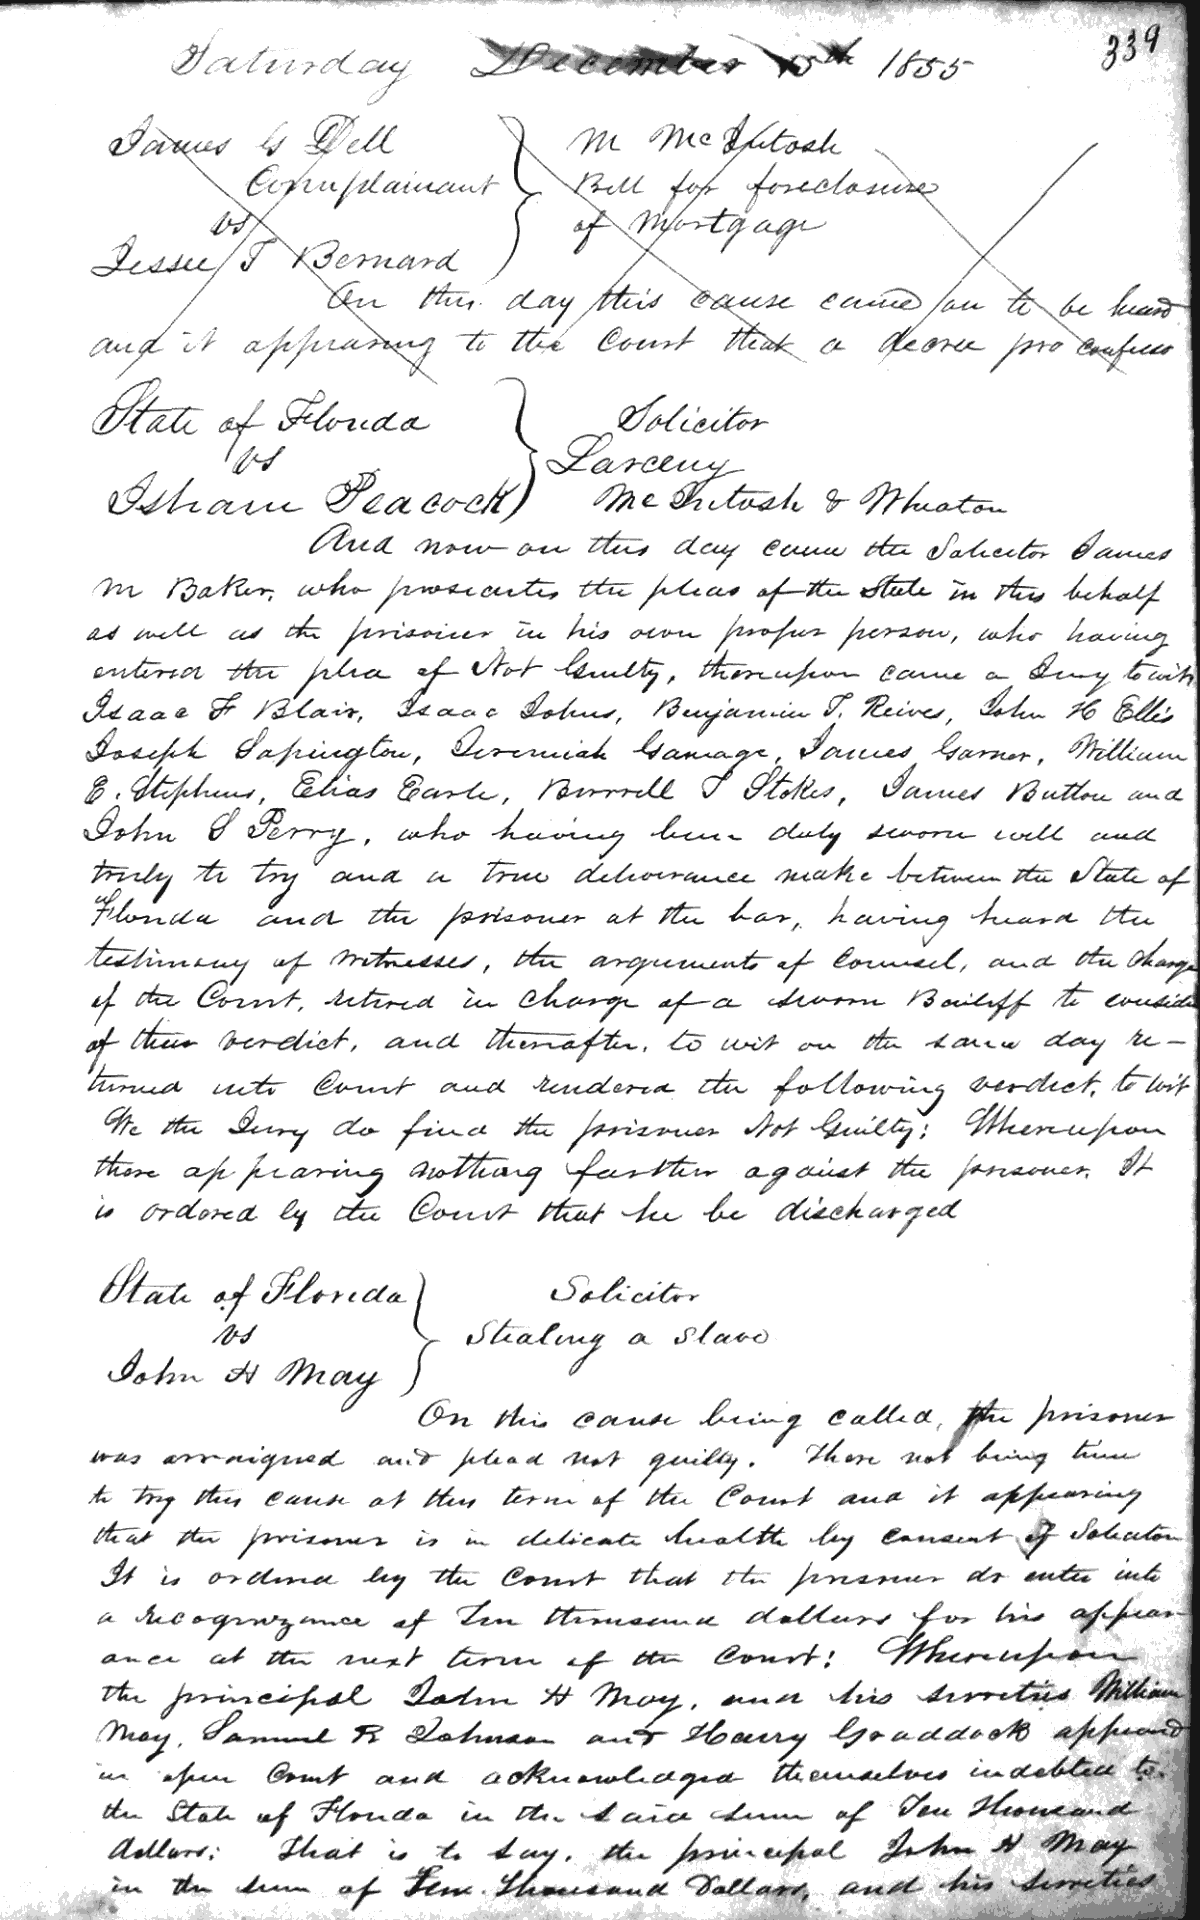 339
Saturday December 15th 1855
James G Dell
Complainant
vs
Jessee T Bernard
M McIntosh
Bill for foreclosure
of Mortgage
On this day this cause came on to be heard
and it appearing to the Court that a decree pro confesso
State of Florida
vs
Isham Peacock
Solicitor
Larceny
McIntosh & Wheaton
And now on this day came the Solicitor James
M Baker, who prosecutes the pleas of the State in this behalf
as well as the prisoner in his own proper person, who having
entered the plea of Not Guilty, thereupon came a Jury to wit
Isaac F Blair, Isaac Johns, Benjamin T. Reives, John H Ellis
Joseph Sapington, Jeremiah Gamage, James Garner, William
E. Stephens, Elias Earle, Burrell S Stokes, James Button and
John S Perry, who having been duly sworn well and
truly to try and a true deliverance make between the State of
Florida and the prisoner at the bar, having heard the
testimony of witnesses, the arguments of counsel, and the charge
of the Court, retired in charge of a sworn Bailiff to consider
of their verdict, and thereafter, to wit on the same day re-
turned into Court and rendered the following verdict, to wit
We the Jury do find the prisoner Not Guilty: Whereupon
there appearing nothing further against the prisoner. It
is ordered by the Court that he be discharged
State of Florida
vs
John H May
Solicitor
Stealing a Slave
On this cause being called, the prisoner
was arraigned and plead not guilty. There not being time
to try this cause at this term of the Court and it appearing
that the prisoner is in delicate health by consent of Solicitor
It is ordered by the Court that the prisoner do enter into
a recognizance of Ten thousand dollars for his appear-
ance at the next term of the Court: Whereupon
the principal John H May, and his sureties William
May, Samuel R Johnson and Harry Graddock appeared
in open Court and acknowledged themselves indebted to
the State of Florida in the said sum of Ten Thousand
dollars: That is to say, the principal John H May
in the sum of Ten Thousand Dollars, and his sureties